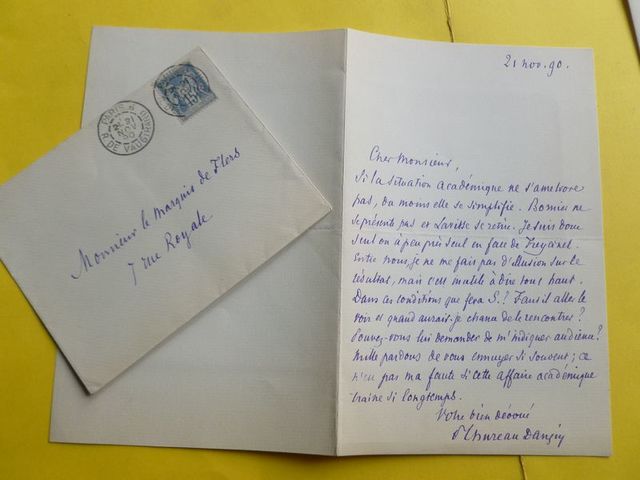 PARIS 6
21
NOV
90
R. DE VAUGIRARD
Monsieur le Marquis de Flers
7 rue Royale
21 nov. 90.
Cher Monsieur,
Si la situation académique ne s'améliore
pas, du moins elle se simplifie. Bornier ne
se présente pas et Lavisse se retire. Je suis donc
seul ou à peu près seul en face de Freycinet.
Entre nous, je ne me fais pas d'illusion sur le
résultat, mais c'est inutile à dire tout haut.
Dans ces conditions que fera S.? Faut-il aller le
voir et quand aurais-je chance de le rencontrer?
Pouvez-vous lui demander de m'indiquer audience?
Mille pardons de vous ennuyer si souvent; ce
n'est pas ma faute si cette affaire académique
traîne si longtemps.
Votre bien dévoué
P. Thureau Dangin